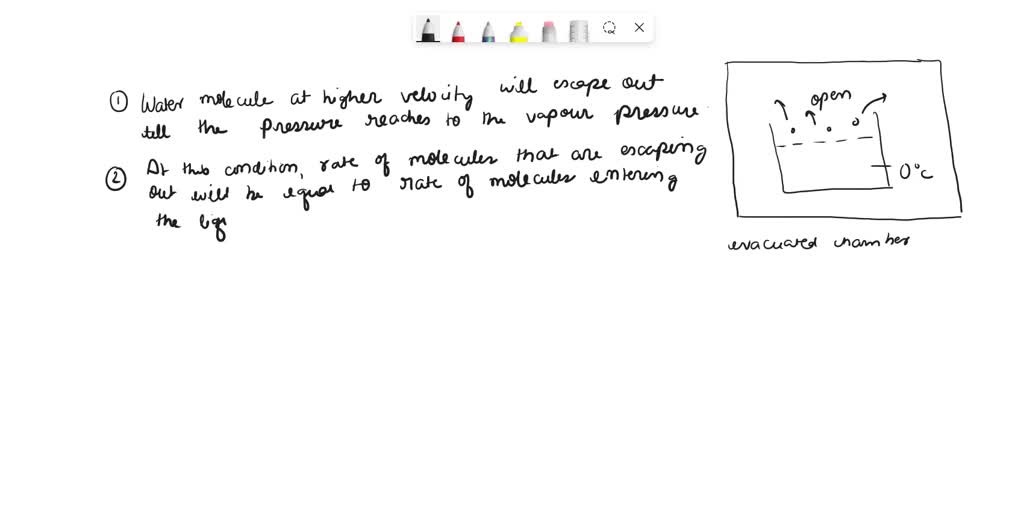 ① Water molecule at higher velocity will escape out
till the pressure reaches to the vapour pressure
② At this condition, rate of molecules that are escaping
out will be equal to rate of molecules entering
the liq
open
0°C
evacuated chamber